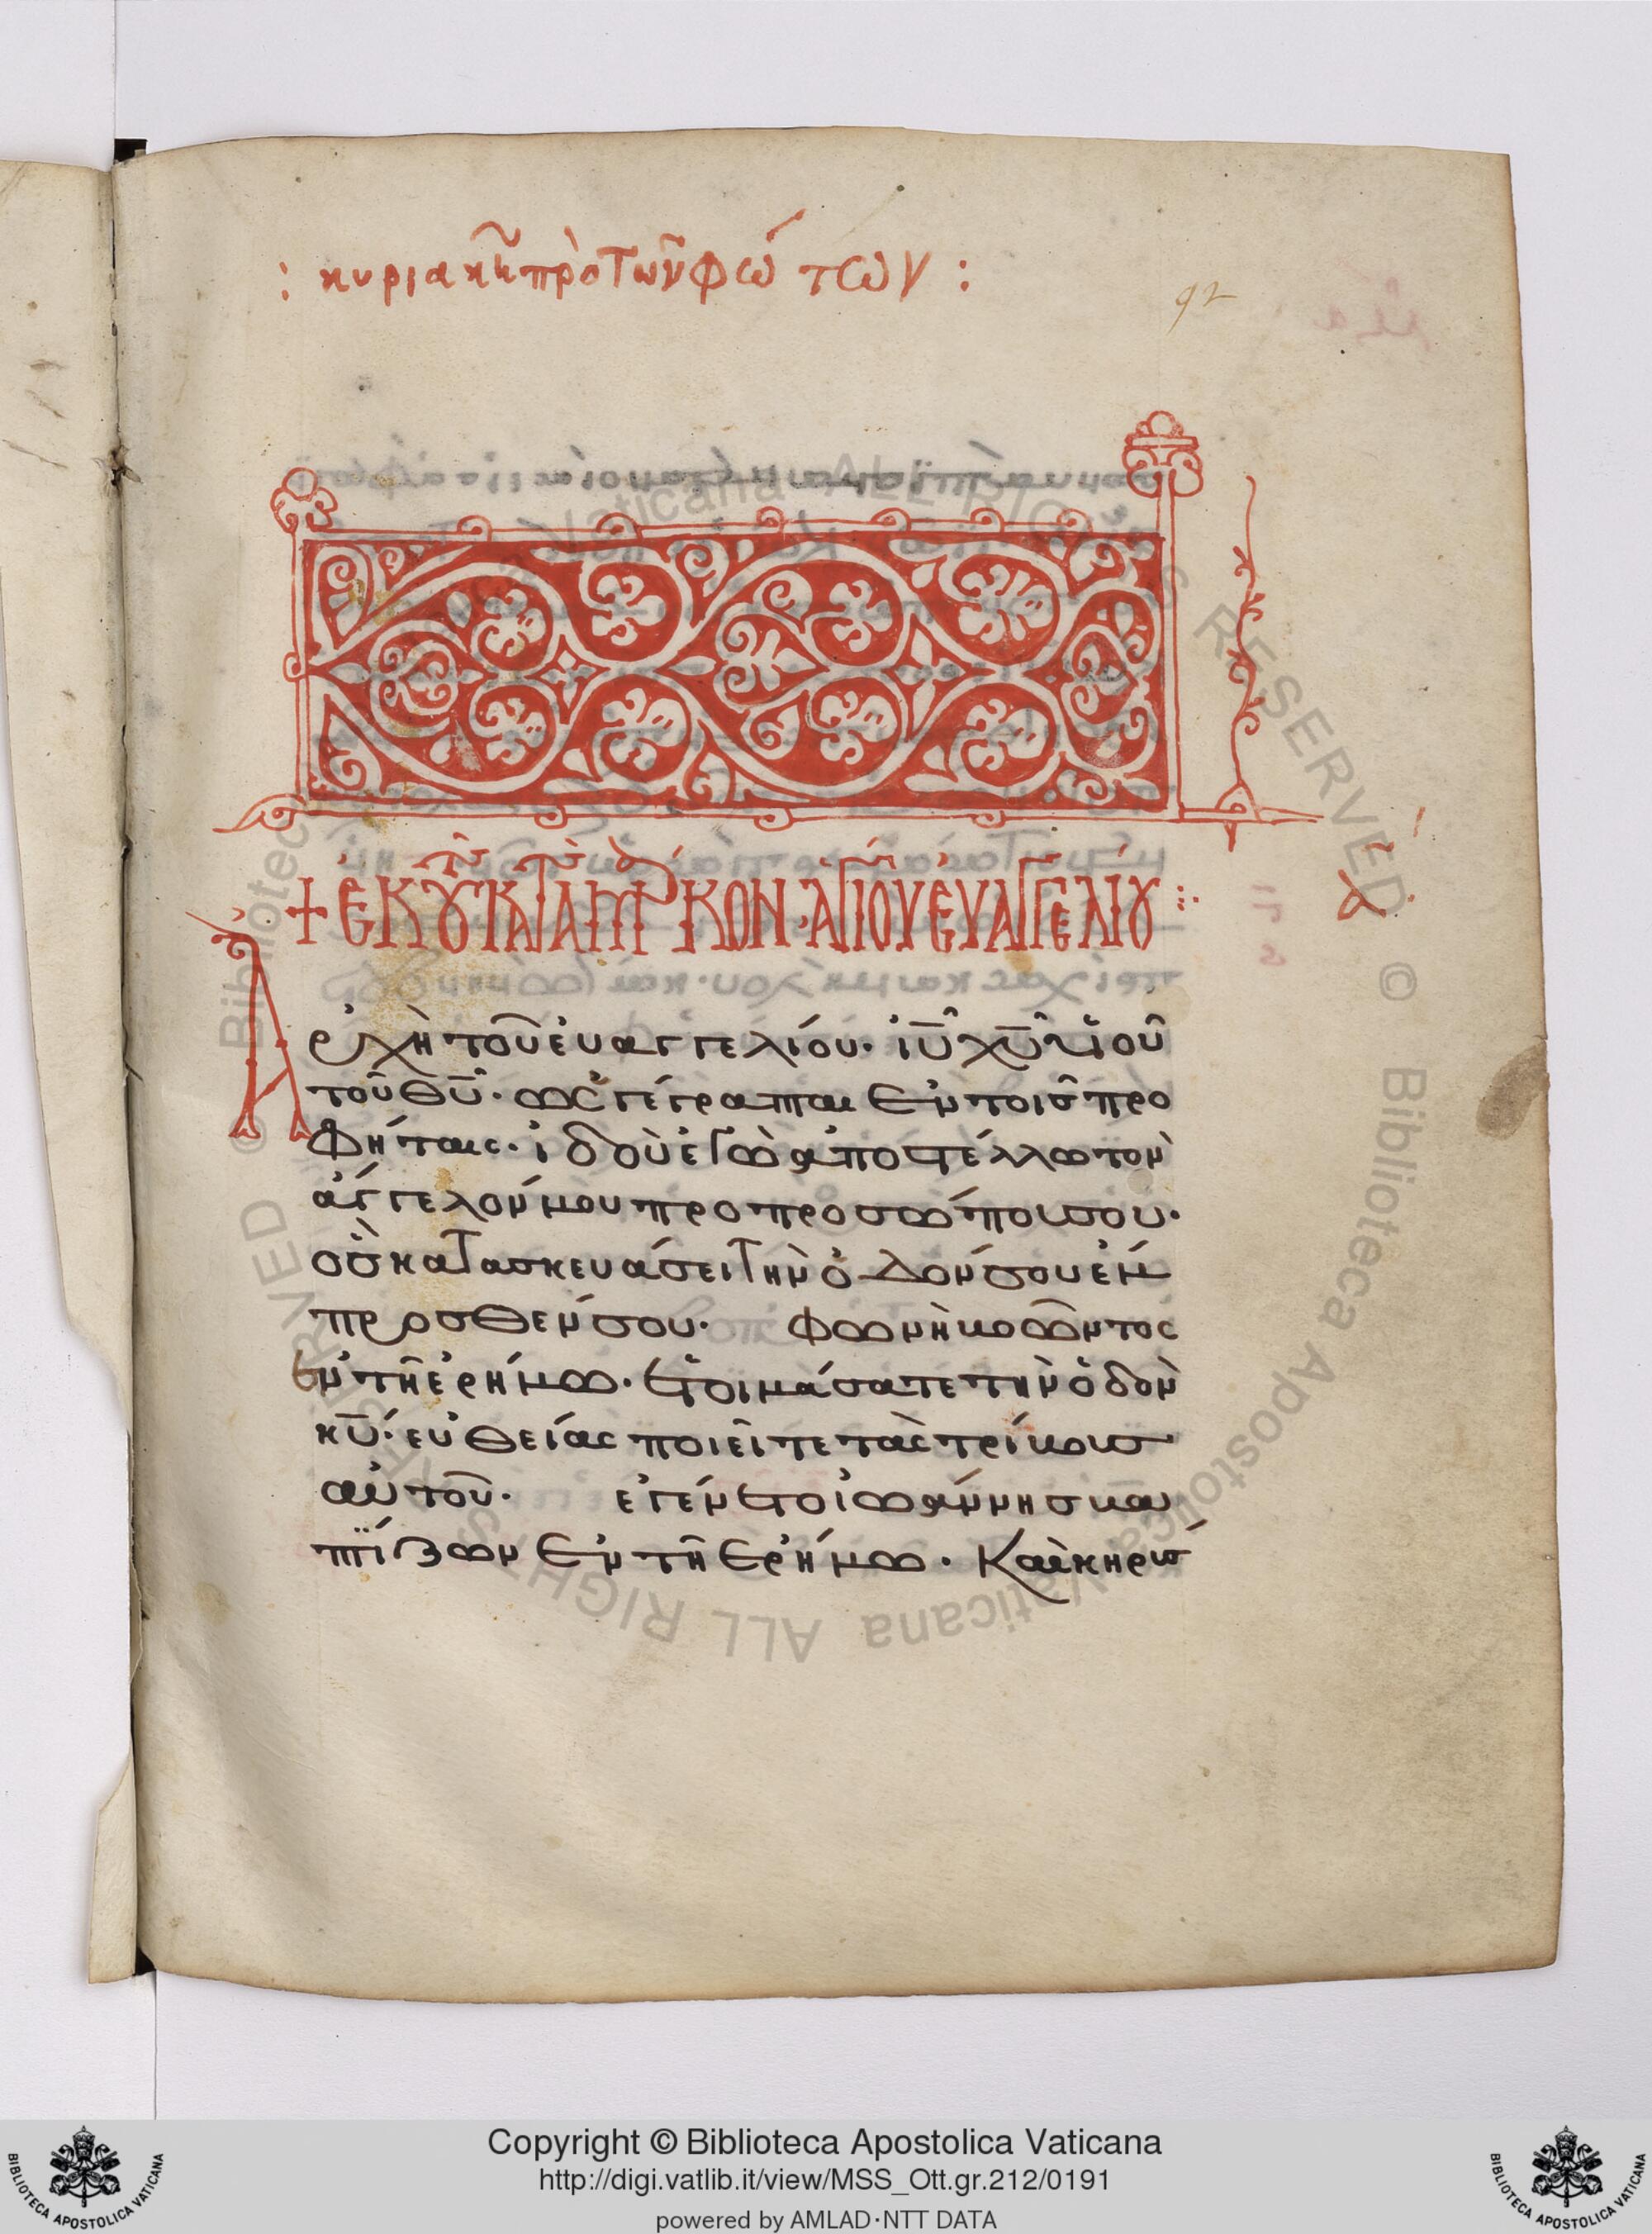 : κυριακῆ πρὸ τῶν φώτων :
92
+ ἐκ τοῦ κατὰ μάρκον ἁγίου εὐαγγελίου :·
α
Ἀρχὴ τοῦ εὐαγγελίου· ἰῦ χῦ υἱοῦ
τοῦ θῦ· ὡς γέγραπται ἐν τοῖς προ
φήταις· ἰδοὺ ἐγὼ ἀποστέλλω τὸν
ἄγγελόν μου πρὸ προσώπου σου·
ὃς κατασκευάσει τὴν ὁδόν σου ἔμ
προσθέν σου· φωνὴ βοῶντος
ἐν τῆ ἐρήμω· ἑτοιμάσατε τὴν ὁδὸν
κῦ· εὐθείας ποιεῖτε τὰς τρίβους
αὐτοῦ· ἐγένετο ἰωάννης βα
πτίζων ἐν τῆ ἐρήμω· Καὶ κηρύσ
Copyright © Biblioteca Apostolica Vaticana
http://digi.vatlib.it/view/MSS_Ott.gr.212/0191
powered by AMLAD·NTT DATA
BIBLIOTECA APOSTOLICA VATICANA
BIBLIOTECA APOSTOLICA VATICANA
© Biblioteca Apostolica Vaticana ALL RIGHTS RESERVED
© Biblioteca Apostolica Vaticana ALL RIGHTS RESERVED